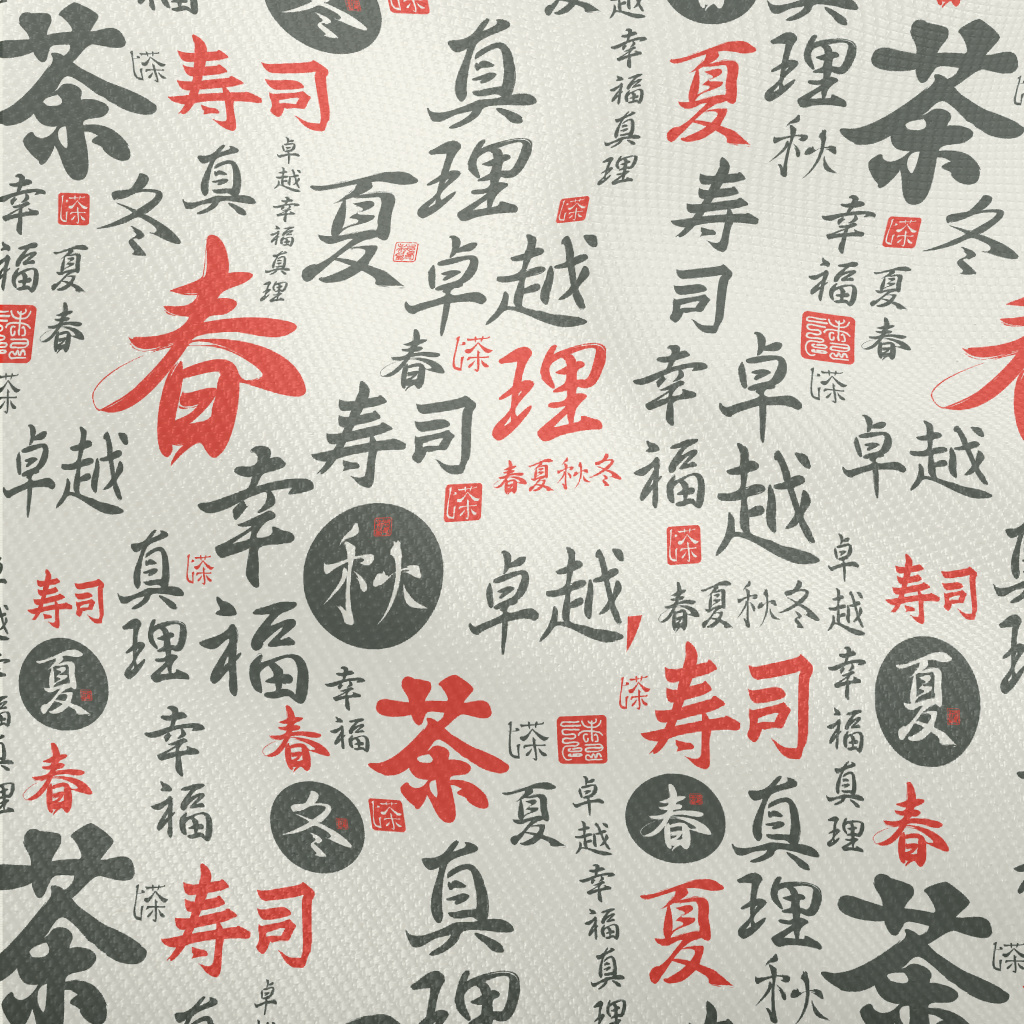 冬
茶
寿司
真理
幸福真理
夏
理
秋
茶
真
卓越幸福真理
夏
幸福
冬
夏
春
寿司
幸福
冬
夏
春
春
卓越
春
理
寿司
春夏秋冬
幸福
卓越
卓越
卓越
幸福
秋
卓越
春夏秋冬
卓越
幸福
真理
真理
寿司
寿司
夏
幸福
幸福
春
茶
寿司
夏
春
冬
夏
卓越
幸福
真理
春
真理
春
茶
寿司
真理
夏
秋
茶
真
卓